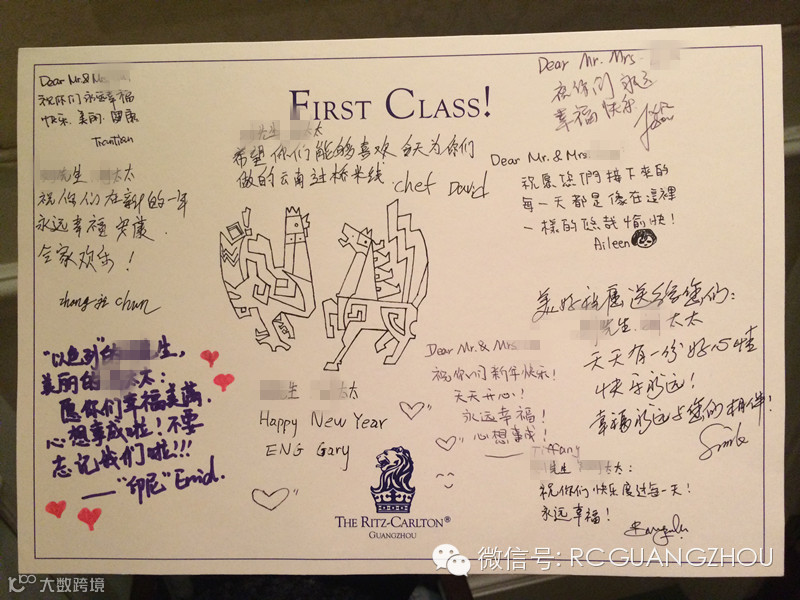 FIRST CLASS!
Dear Mr.& Mrs.
祝你们永远幸福
快乐、美丽、健康
Tiantian
先生 太太
祝你们在新的一年
永远幸福安康.
全家欢乐！
zhang Chun
"以色列"的 先生,
美丽的 太太:
愿你们幸福美满,
心想事成啦！不要
忘记我们啦!!!
——"印尼" Enid.
先生 太太
希望你们能够喜欢 每天为你们
做的云南过桥米线. chef David
先生 太太
Happy New Year
ENG Gary
Dear Mr. Mrs.
祝你们永远
幸福快乐
Jason
Dear Mr.& Mrs
祝愿您們接下來的
每一天都是像在這裡
一樣的愉快！
Aileen
美好祝愿送给您们:
先生. 太太
天天有一份好心情
快乐永远！
幸福永远与您们相伴！
Smile
Dear Mr.& Mrs
祝你们新年快乐！
天天开心！
永远幸福！
心想事成！
Tiffany
先生 太太:
祝你们快乐度过每一天！
永远幸福！
THE RITZ-CARLTON®
GUANGZHOU
微信号: RCGUANGZHOU
大数跨境